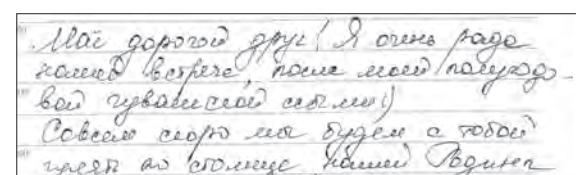 Мой дорогой друг! Я очень рада
нашей встрече, после моей полугодо
вой чувашской ссылки)
Совсем скоро мы будем с тобой
гулять по столице нашей Родины